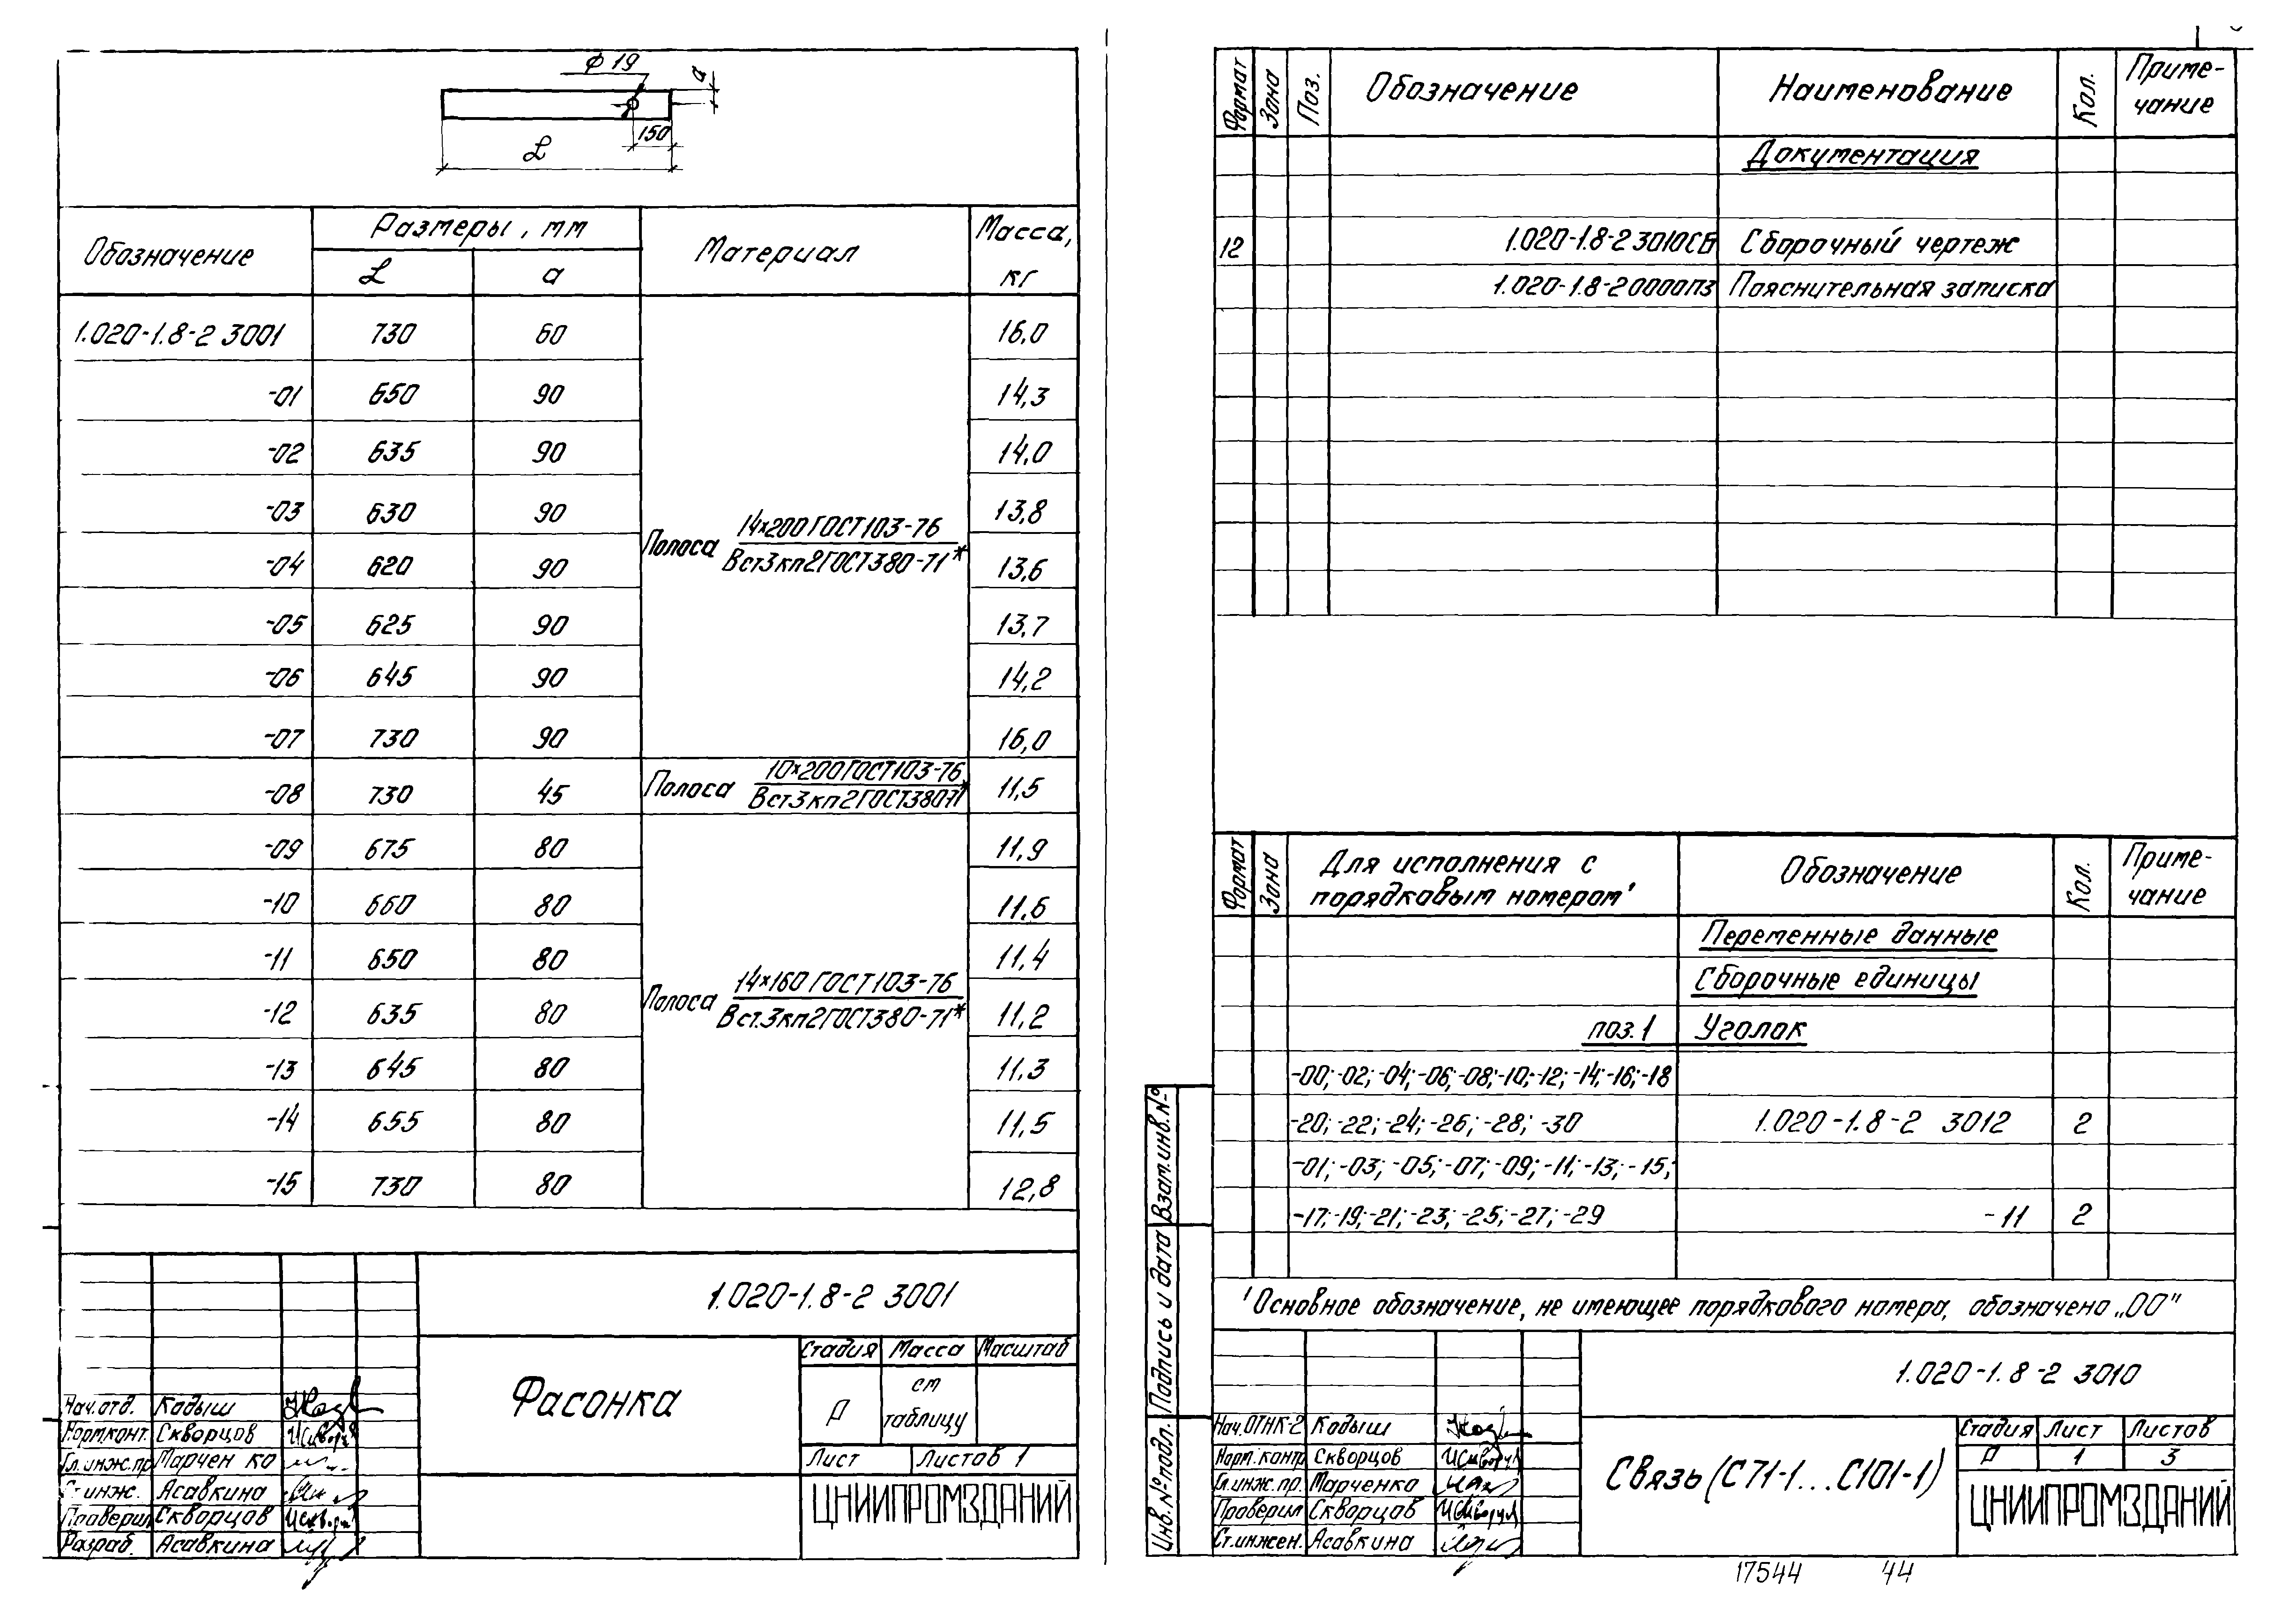 ф 19
а
150
L
Обозначение
Размеры, мм
Материал
Масса, кг
L
а
1.020-1.8-2 3001 730 60 16,0
-01 650 90 14,3
-02 635 90 14,0
-03 630 90 13,8
Полоса 14×200 ГОСТ 103-76
Вст3кп2 ГОСТ 380-71*
-04 620 90 13,6
-05 625 90 13,7
-06 645 90 14,2
-07 730 90 16,0
-08 730 45 Полоса 10×200 ГОСТ 103-76 11,5
Вст3кп2 ГОСТ 380 71*
-09 675 80 11,9
-10 660 80 11,6
-11 650 80 11,4
Полоса 14×160 ГОСТ 103-76
Вст.3кп2 ГОСТ 380-71*
-12 635 80 11,2
-13 645 80 11,3
-14 655 80 11,5
-15 730 80 12,8
1.020-1.8-2 3001
Фасонка
Стадия Масса Масштаб
Р см таблицу
Лист Листов 1
ЦНИИПРОМЗДАНИЙ
Нач.отд. Кодыш
Норм.конт. Скворцов
Гл.инж.пр Марчен ко
Ст.инж. Асавкина
Проверил Скворцов
Разраб. Асавкина
Формат Зона Поз. Обозначение Наименование Кол. Приме-
чание
Документация
12 1.020-1.8-2 3010СБ Сборочный чертеж
1.020-1.8-2 0000ПЗ Пояснительная записка
Формат Зона Для исполнения с порядковым номером¹ Обозначение Кол. Приме-
чание
Переменные данные
Сборочные единицы
поз.1 Уголок
-00; -02; -04; -06; -08; -10; -12; -14; -16; -18
-20; -22; -24; -26; -28; -30 1.020-1.8-2 3012 2
-01; -03; -05; -07; -09; -11; -13; -15;
-17; -19; -21; -23; -25; -27; -29 -11 2
¹Основное обозначение, не имеющее порядкового номера, обозначено „00"
1.020-1.8-2 3010
Связь (С71-1...С101-1)
Стадия Лист Листов
Р 1 3
ЦНИИПРОМЗДАНИЙ
Нач.ОТНК-2 Кодыш
Норм.контр Скворцов
Гл.инж.пр. Марченко
Проверил Скворцов
Ст.инжен. Асавкина
Инв.№подл. Подпись и дата Взам.инв.№
17544 44